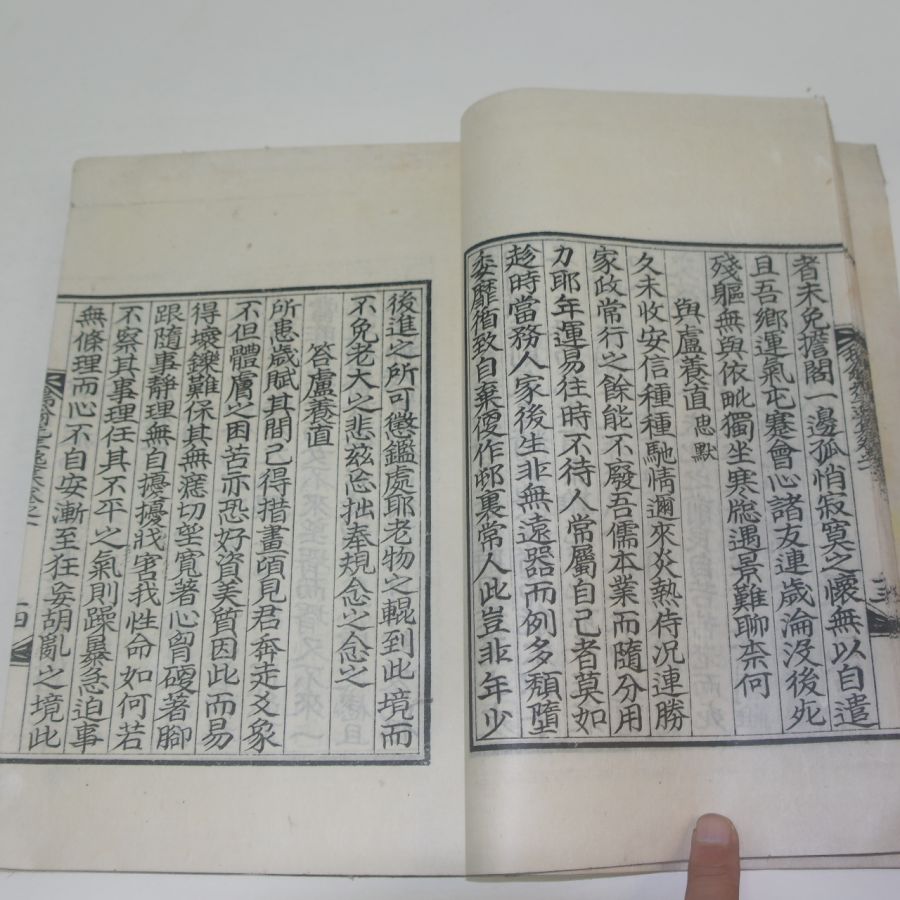 者未免擔閣一邊孤悄寂寞之懷無以自遣
且吾鄉運氣屯蹇會心諸友連歲淪沒後死
殘軀無與依毗獨坐寒牎遇景難聊柰何
與盧養直 思默
久未收安信種種馳情邇來炎熱侍況連勝
家政常行之餘能不廢吾儒本業而隨分用
力耶年運易往時不待人常屬自己者莫如
趁時當務人家後生非無遠器而例多頹墮
委靡循致自棄便作邨裏常人此豈非年少
後進之所可懲鑑處耶老物之輥到此境而
不免老大之悲玆忘拙奉規念之念之
答盧養直
所患歲賦其間已得措畫頃見君奔走爻象
不但體膚之困苦亦恐好資美質因此而易
得壞鑠難保其無癋切望寬著心胷硬著腳
跟隨事靜理無自擾擾戕害我性命如何若
不察其事理任其不平之氣則躁暴急迫事
無條理而心不自安漸至狂妄胡亂之境此
十四